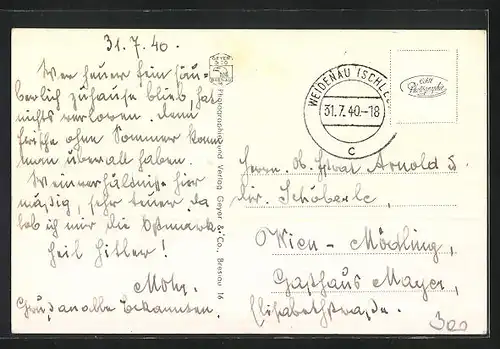 31. 7. 40.
Wer heuer fein säu-
berlich zuhause blieb, hat
nichts verloren. Denn
Frische ohne Sommer kann
man überall haben.
Weinverhältnisse hier
mäßig, sehr teuer. Da
lob ich mir die Ostmark.
Heil Hitler!
Mohr.
Gruß an alle Bekannten.
Photographie und Verlag Geyer & Co., Breslau 16
WEIDENAU (SCHLES.
31.7.40.-18
c
Echt
Photographie
Herrn Ob. Arnold
Schöberle,
Wien – Mödling,
Gasthaus Mayer,
Elisabethstraße.
300